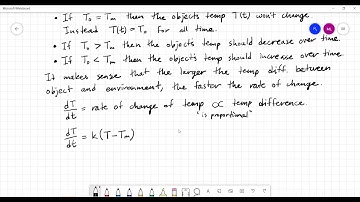 Microsoft Whiteboard
• If T₀ = Tₘ then the objects temp T(t) won't change
Instead T(t) = T₀ for all time.
• If T₀ > Tₘ then the objects temp should decrease over time.
• If T₀ < Tₘ then the objects temp should increase over time.
It makes sense that the larger the temp diff. between
object and environment, the faster the rate of change.
dT/dt = rate of change of temp ∝ temp difference.
"is proportional"
dT/dt = k(T-Tₘ)